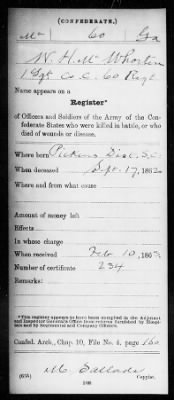 (CONFEDERATE.)
Mc 60 Ga
W. H. McWhorter
1 Sgt Co. C. 60 Regt
Name appears on a
Register*
of Officers and Soldiers of the Army of the Con-
federate States who were killed in battle, or who
died of wounds or disease.
Where born Pickens Dist. S.C.
When deceased Sept. 17, 1862
Where and from what cause
Amount of money left
Effects
In whose charge
When received Feb 10, 1863
Number of certificate 234
Remarks:
*This register appears to have been compiled in the Adjutant
and Inspector General's Office from returns furnished by Hospi-
tals and by Regimental and Company Officers.
Confed. Arch., Chap. 10, File No. 4, page 160
(635) Copyist.